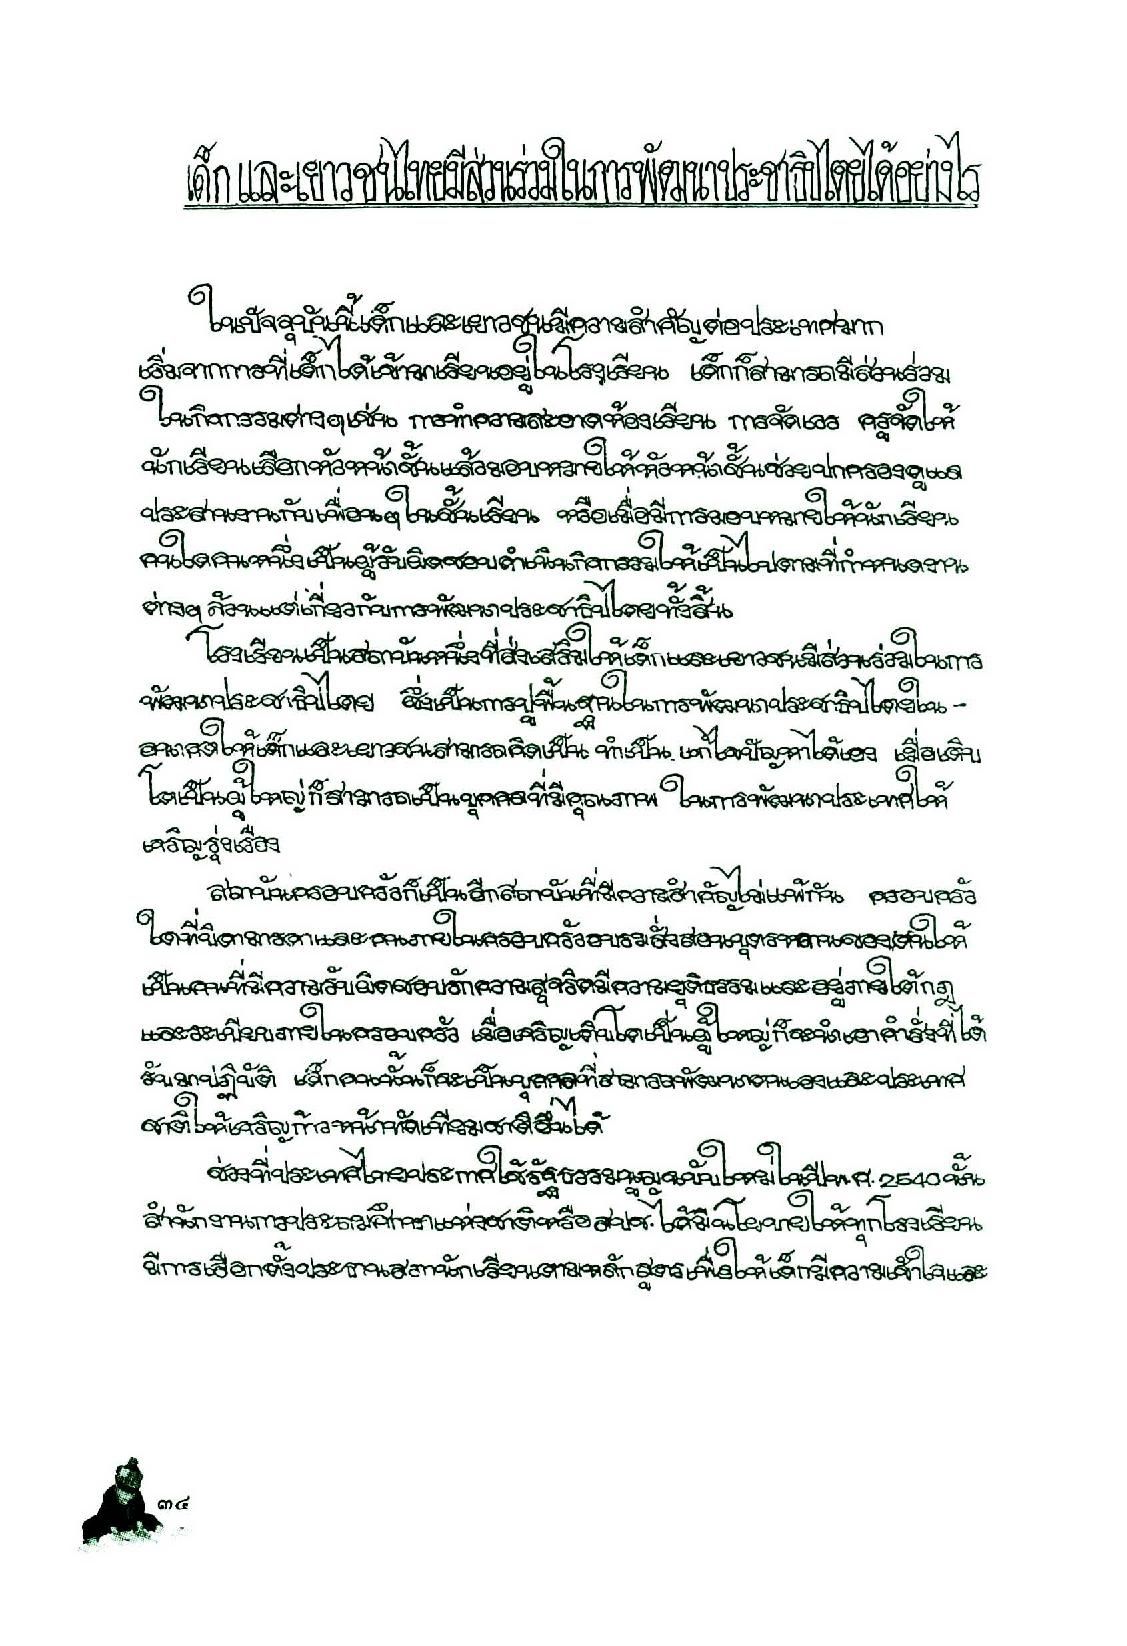 เด็กและเยาวชนไทยมีส่วนร่วมในการพัฒนาประชาธิปไตยได้อย่างไร
ในปัจจุบันนี้เด็กและเยาวชนมีความสำคัญต่อประเทศมาก
เริ่มจากการที่เด็กได้เข้ามาเรียนอยู่ในโรงเรียน เด็กก็สามารถมีส่วนร่วม
ในกิจกรรมต่างๆเช่น การทำความสะอาดห้องเรียน การจัดเวร ครูจัดให้
นักเรียนเลือกหัวหน้าชั้นแล้วมอบหมายให้หัวหน้าชั้นช่วยปกครองดูแล
ประสานงานกับเพื่อนๆในชั้นเรียน หรือเมื่อมีการมอบหมายให้นักเรียน
คนใดคนหนึ่งเป็นผู้รับผิดชอบดำเนินกิจกรรมให้เป็นไปตามที่กำหนดงาน
ต่างๆ ล้วนแต่เกี่ยวกับการพัฒนาประชาธิปไตยทั้งสิ้น
โรงเรียนเป็นสถาบันหนึ่งที่ส่งเสริมให้เด็กและเยาวชนมีส่วนร่วมในการ
พัฒนาประชาธิปไตย ซึ่งเป็นการปูพื้นฐานในการพัฒนาประชาธิปไตยใน -
อนาคตให้เด็กและเยาวชนสามารถคิดเป็น ทำเป็น แก้ไขปัญหาได้เอง เมื่อเติบ
โตเป็นผู้ใหญ่ก็สามารถเป็นบุคคลที่มีคุณภาพ ในการพัฒนาประเทศให้
เจริญรุ่งเรือง
สถาบันครอบครัวก็เป็นอีกสถาบันที่มีความสำคัญไม่แพ้กัน ครอบครัว
ใดที่บิดามารดาและคนภายในครอบครัวอบรมสั่งสอนบุตรหลานของตนให้
เป็นคนที่มีความรับผิดชอบรักความสุจริตมีความยุติธรรมและอยู่ภายใต้กฎ
และระเบียบภายในครอบครัว เมื่อเจริญเติบโตเป็นผู้ใหญ่ก็จะนำเอาคำสั่งที่ได้
รับมาปฏิบัติ เด็กคนนั้นก็จะเป็นบุคคลที่สามารถพัฒนาตนเองและประเทศ
ชาติให้เจริญก้าวหน้าทัดเทียมชาติอื่นได้
ช่วงที่ประเทศไทยประกาศใช้รัฐธรรมนูญฉบับใหม่ในปีพ.ศ. 2540 นั้น
สำนักงานการประถมศึกษาแห่งชาติหรือ สปช. ได้มีนโยบายให้ทุกโรงเรียน
มีการเลือกตั้งประธานสภานักเรียนตามหลักสูตรเพื่อให้เด็กมีความเข้าใจและ
๓๔